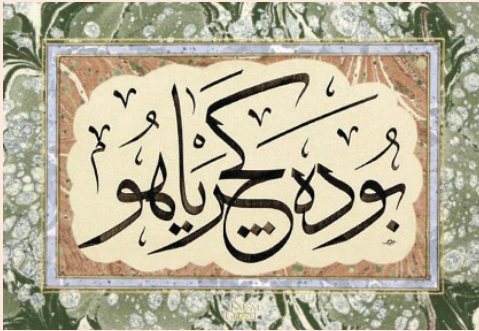 بو ده گچر یا هو